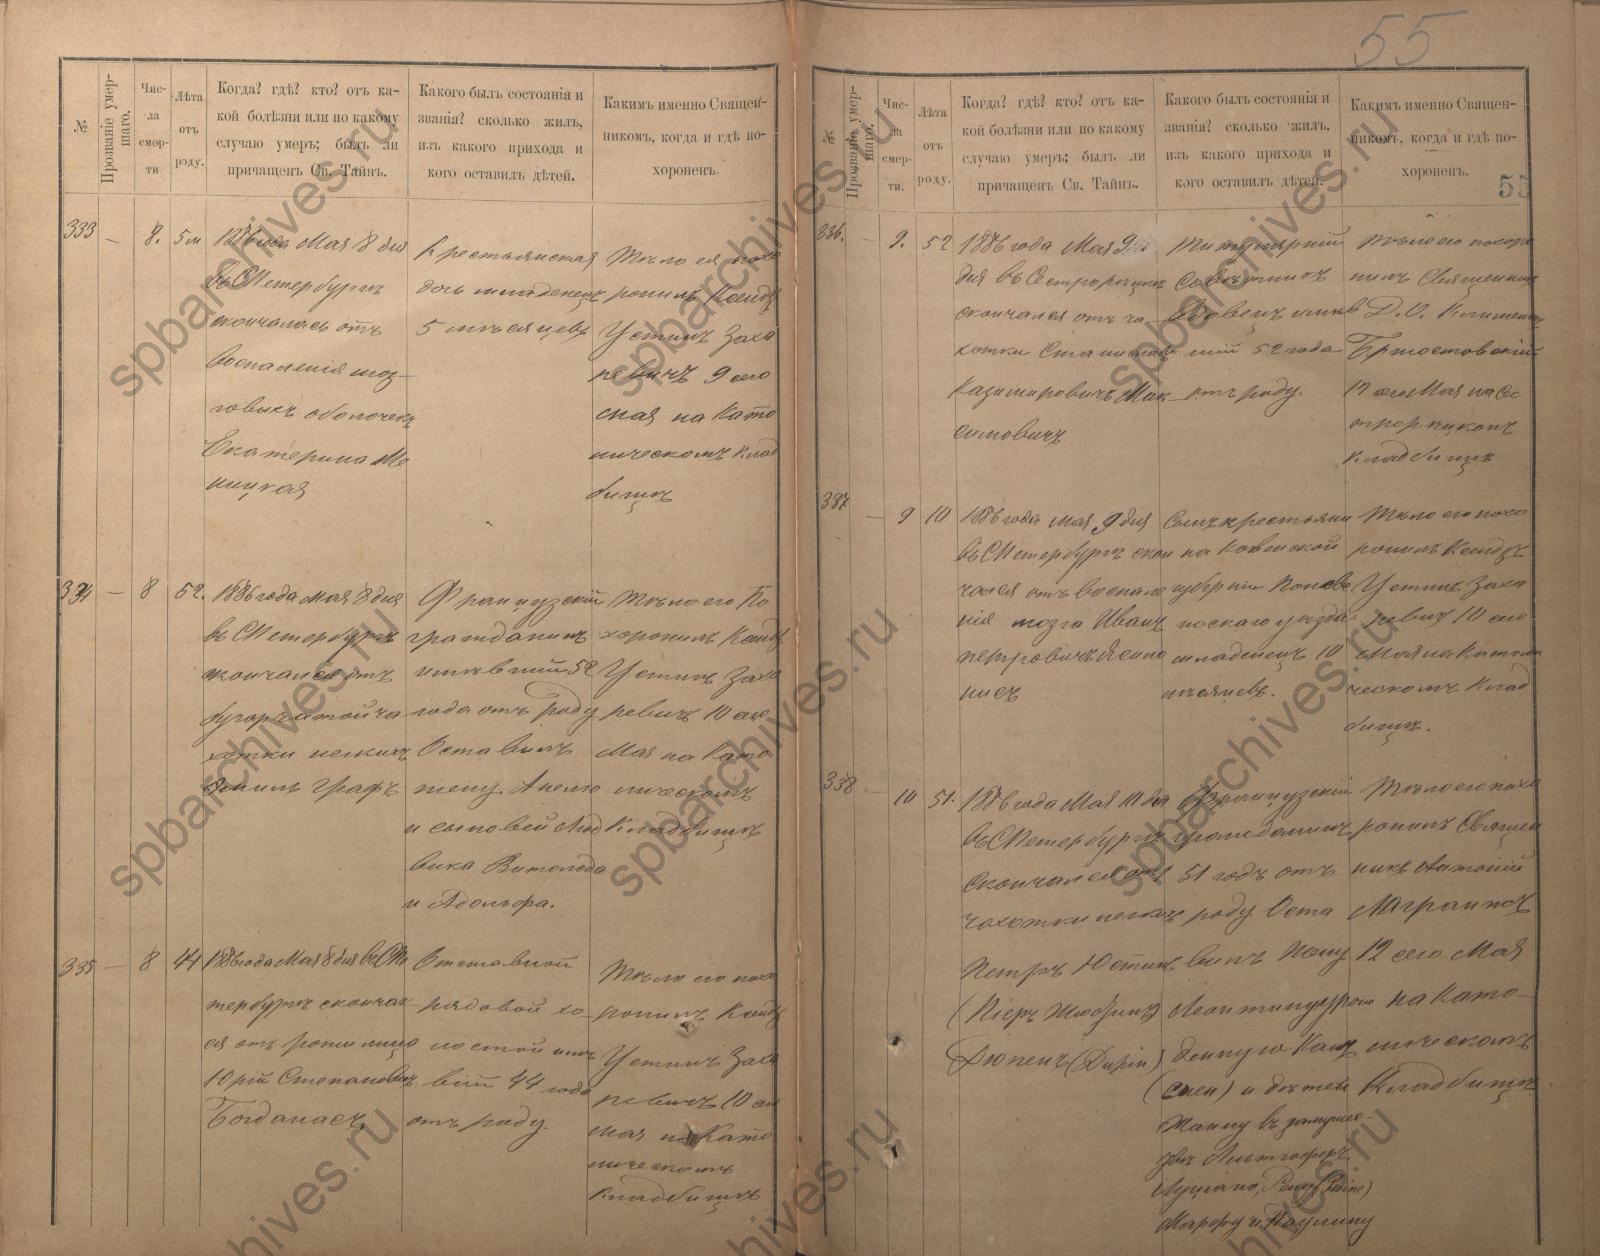 55
№
Прозваніе умер-
шаго.
Чис-
ла
смер-
ти.
Лѣта
отъ
роду.
Когда? гдѣ? кто? отъ ка-
кой болѣзни или по какому
случаю умеръ; былъ ли
причащенъ Св. Тайнъ.
Какого былъ состоянія и
званія? сколько жилъ,
изъ какого прихода и
кого оставилъ дѣтей.
Какимъ именно Священ-
никомъ, когда и гдѣ по-
хороненъ.
333
—
8.
5 м
1886 года Мая 8 дня
въ СПетербургѣ
скончалась отъ
воспаленія моз-
говыхъ оболочекъ
Екатерина
Крестьянская
дочь младенецъ
5 мѣсяцевъ
Тѣло ея похо
ронилъ Ксендзъ
Устинъ Заха
ревичъ 9 сего
мая на Като
лическомъ Клад
бищѣ
334
—
8
52.
1886 года мая 8 дня
въ СПетербургѣ
скончался отъ
бугорчатой ча
хотки легкихъ
Эмиль Графъ
Французскій
гражданинъ
имѣвшій 52
года отъ роду
Оставилъ
жену
и сыновей Люд
вика Витольда
и Адольфа.
Тѣло его По
хоронилъ Ксендзъ
Устинъ Заха
ревичъ 10 сего
Мая на Като
лическомъ
Кладбищѣ
335
—
8
44
1886 года Мая 8 дня въ СПе
тербургѣ скончал
ся отъ
Юрій Степановичъ
Отставной
рядовой хо-
лостой имѣ
вшій 44 года
отъ роду.
Тѣло его похо
ронилъ Ксендзъ
Устинъ Заха
ревичъ 10 сего
мая на Като
лическомъ
Кладбищѣ
№
Прозваніе умер-
шаго.
Чис-
ла
смер-
ти.
Лѣта
отъ
роду.
Когда? гдѣ? кто? отъ ка-
кой болѣзни или по какому
случаю умеръ; былъ ли
причащенъ Св. Тайнъ.
Какого былъ состоянія и
званія? сколько жилъ,
изъ какого прихода и
кого оставилъ дѣтей.
Какимъ именно Священ-
никомъ, когда и гдѣ по-
хороненъ.
55
336.
—
9.
52
1886 года Мая 9
дня въ Сестрорѣцкѣ
скончался отъ ча-
хотки Станиславъ
Казимировичъ Мак
симовичъ
Титулярный
Совѣтникъ
вдовецъ имѣв
шій 52 года
отъ роду.
Тѣло его похоро
нилъ Священник
Д. О. Климентъ
Бржостовскій
12 сего Мая на Сес
трорѣцкомъ
кладбищѣ
337
—
9
10
1886 года мая 9 дня
въ СПетербургѣ скон
чался отъ воспале
нія мозга Иванъ
Петровичъ
Сынъ крестьяни
на Ковенской
губерніи Понев
ѣжскаго уѣзда
младенецъ 10
мѣсяцевъ.
Тѣло его похо
ронилъ Ксендзъ
Устинъ Заха
ревичъ 10 сего
Мая на Католи
ческомъ Клад
бищѣ.
338
—
10
51.
1886 года Мая 10 дня
въ СПетербургѣ
Скончался отъ
чахотки легкихъ
Петръ Юстинъ
(Піеръ Жюстинъ)
Дюпенъ (Dupin)
Французскій
гражданинъ
51 годъ отъ
роду. Оста
вилъ жену
Леонтину
и дѣтей
Жанну въ замуже-
Марфу и Паулину
Тѣло его похо
ронилъ Священ
никъ Антоній
12 сего Мая
на Като-
лическомъ
Кладбищѣ
spbarchives.ru
spbarchives.ru
spbarchives.ru
spbarchives.ru
spbarchives.ru
spbarchives.ru
spbarchives.ru
spbarchives.ru
spbarchives.ru